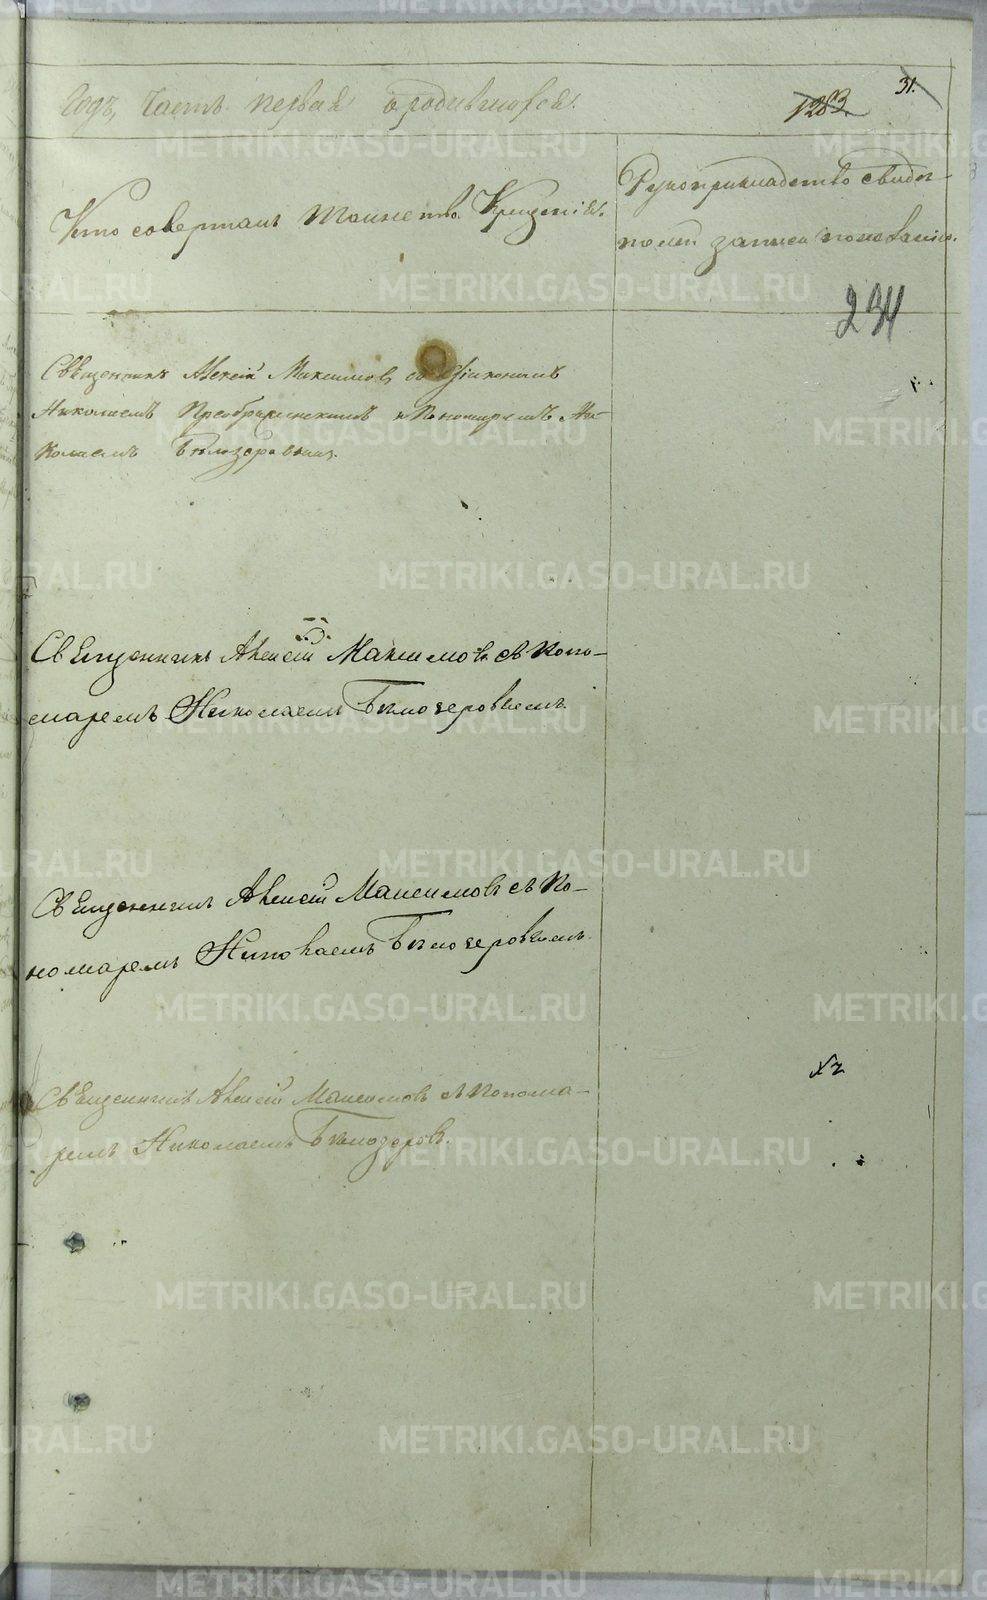 Годъ, Часть первая о родившихся.
1283.
31.
Кто совершалъ таинство Крещенія.
Рукоприкладство свидѣ-
телей записи по желанію.
234
Священникъ Алексій Максимовъ съ Діакономъ
Николаемъ Преображенскимъ и Пономаремъ Ни-
колаемъ Бѣлозеровымъ.
Священникъ Алексій Максимовъ съ Поно-
маремъ Николаемъ Бѣлозеровымъ.
Священникъ Алексій Максимовъ съ По-
номаремъ Николаемъ Бѣлозеровымъ.
Священникъ Алексій Максимовъ съ Понома-
ремъ Николаемъ Бѣлозеров.
METRIKI.GASO-URAL.RU